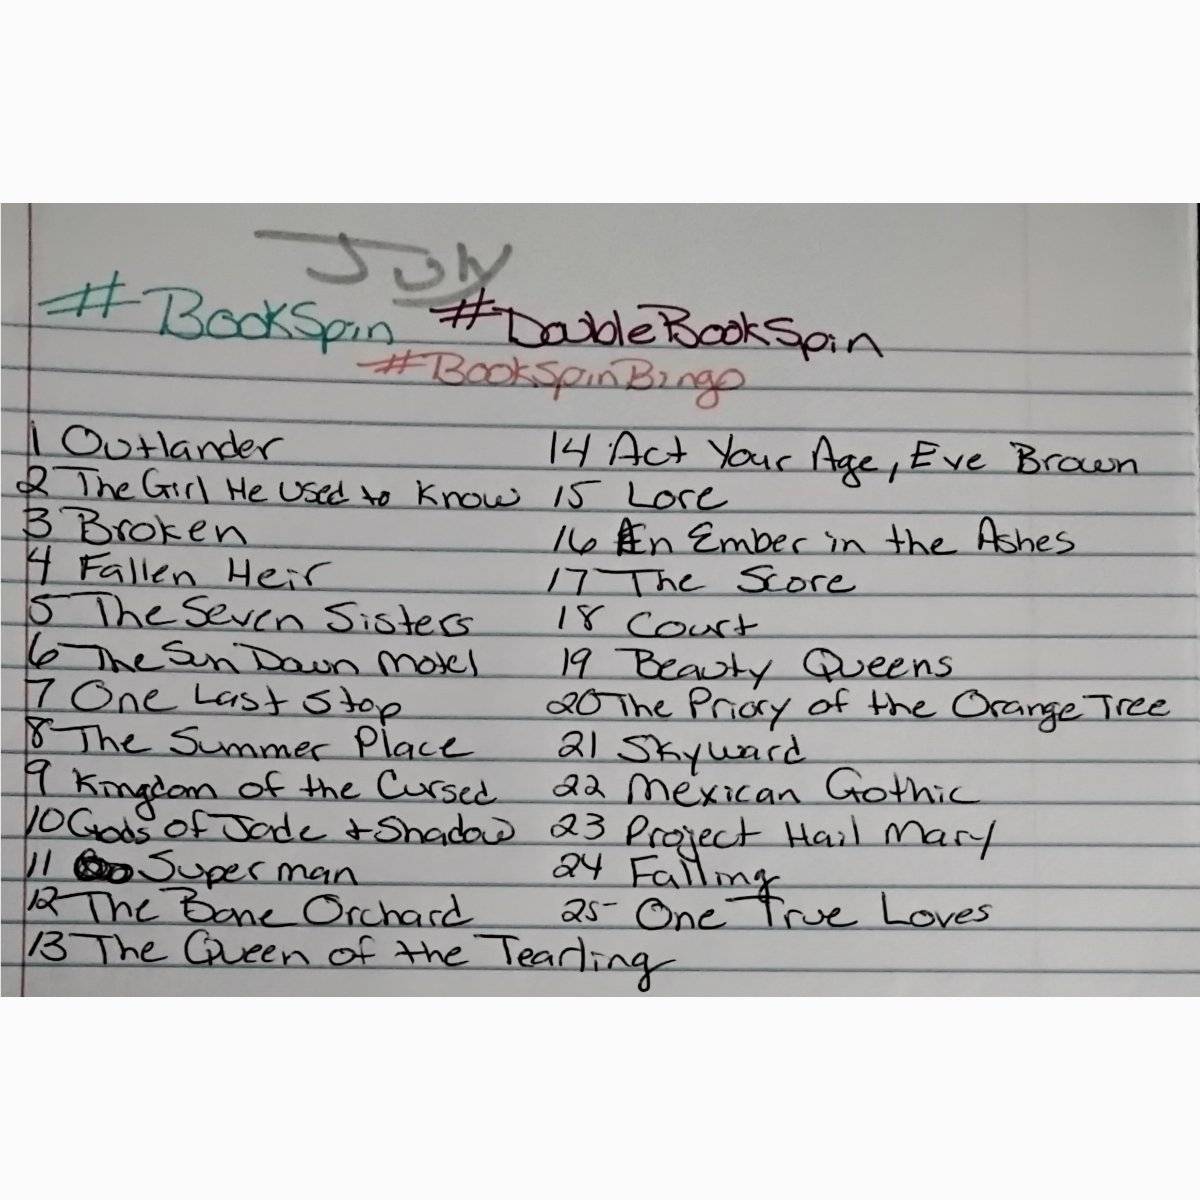 July
#BookSpin #DoubleBookSpin
#BookSpinBingo
1 Outlander
2 The Girl He Used to Know
3 Broken
4 Fallen Heir
5 The Seven Sisters
6 The Sun Down Motel
7 One Last Stop
8 The Summer Place
9 Kingdom of the Cursed
10 Gods of Jade + Shadow
11 Superman
12 The Bone Orchard
13 The Queen of the Tearling
14 Act Your Age, Eve Brown
15 Lore
16 An Ember in the Ashes
17 The Score
18 Court
19 Beauty Queens
20 The Priory of the Orange Tree
21 Skyward
22 Mexican Gothic
23 Project Hail Mary
24 Falling
25 One True Loves